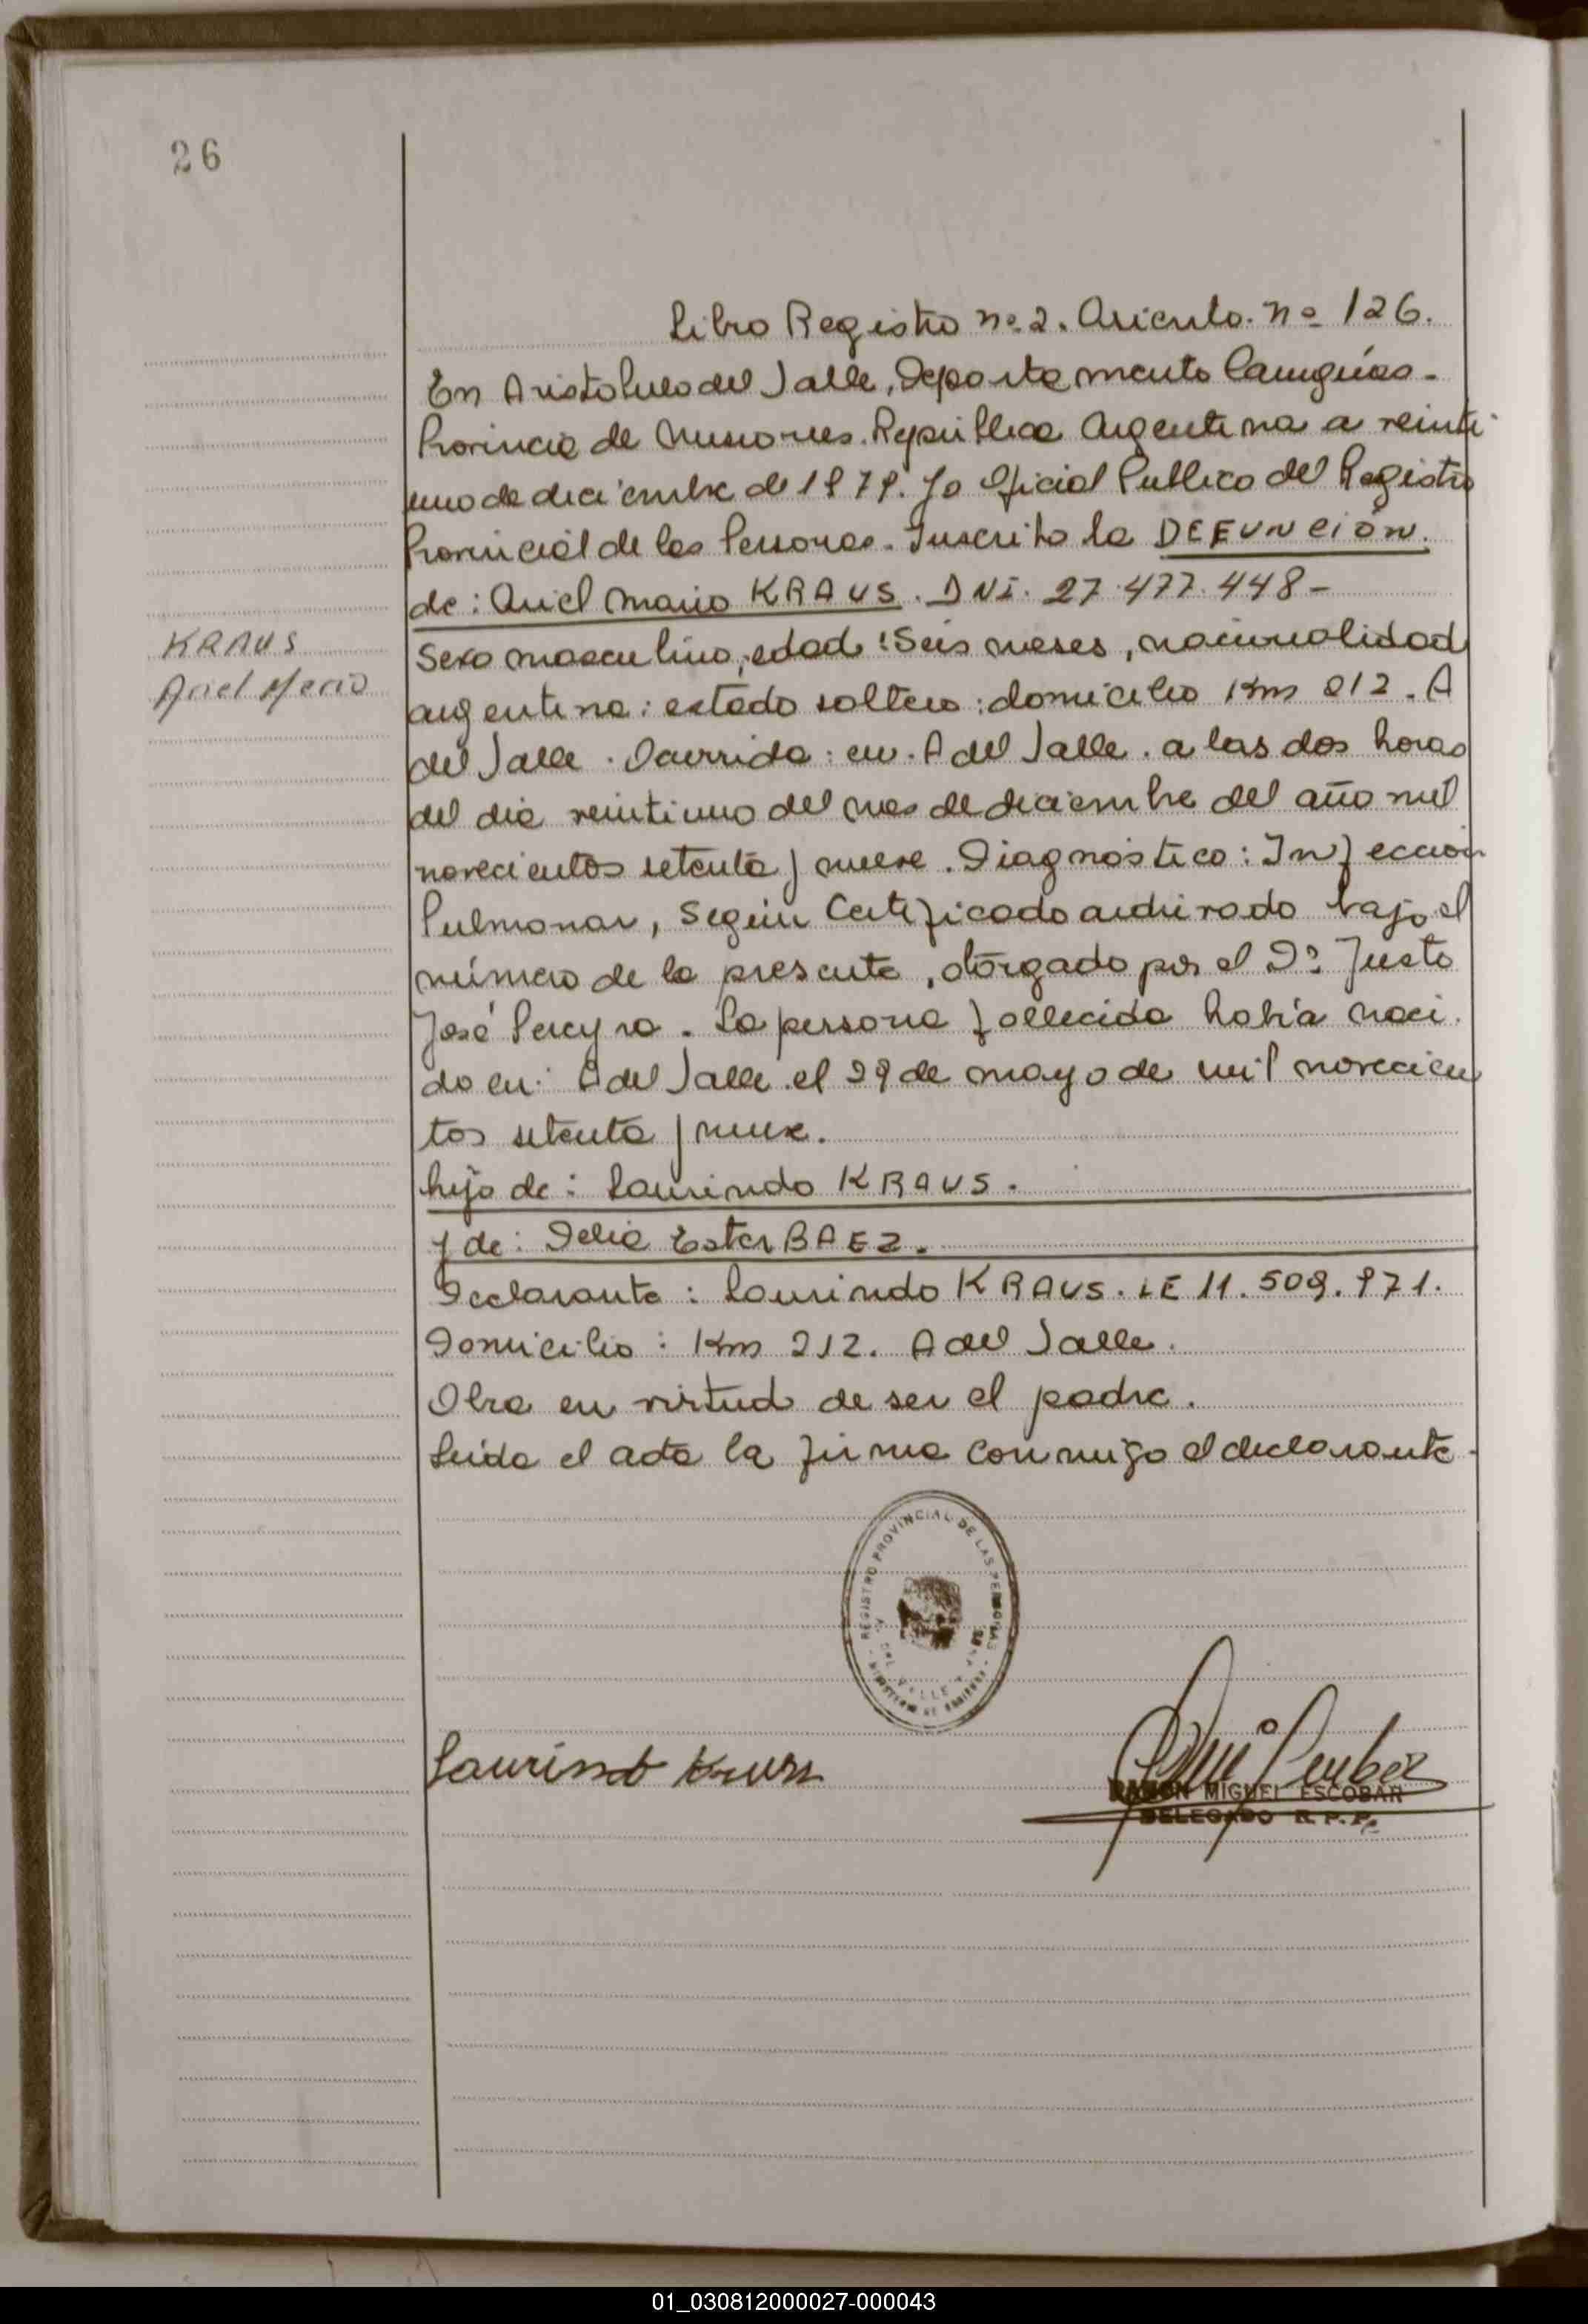 26
Libro Registro nº 2. Asiento. nº 126.
En Aristobulo del Valle, Departamento Cainguás -
Provincia de Misiones. República Argentina a veinti-
uno de diciembre de 1979. Yo Oficial Publico del Registro
Provincial de las Personas. Inscribo la DEFUNCIÓN.
de: Ariel Mario KRAUS. DNI. 27.477.448-
KRAUS
Ariel Mario
Sexo masculino, edad: Seis meses, nacionalidad
argentina: estado soltero: domicilio Km 212. A
del Valle. Ocurrida: en. A del Valle. a las dos horas
del dia veintiuno del mes de diciembre del año mil
novecientos setenta y nueve. Diagnóstico: Infección
Pulmonar, Según Certificado archivado bajo el
número de la presente, otorgado por el Dr. Justo
José Pereyra. La persona fallecida había naci-
do en: A del Valle el 29 de mayo de mil novecien
tos setenta y nueve.
hijo de: Laurindo KRAUS.
y de: Delia Ester BAEZ.
Declarante: Laurindo KRAUS. LE 11.509.971.
Domicilio: Km 212. A del Valle.
Obra en virtud de ser el padre.
Leída el acta la firma conmigo el declarante.
REGISTRO PROVINCIAL DE LAS PERSONAS
DEL VALLE
Laurindo Kraus
RAMON MIGUEL ESCOBAR
DELEGADO R.P.P.
01_030812000027-000043